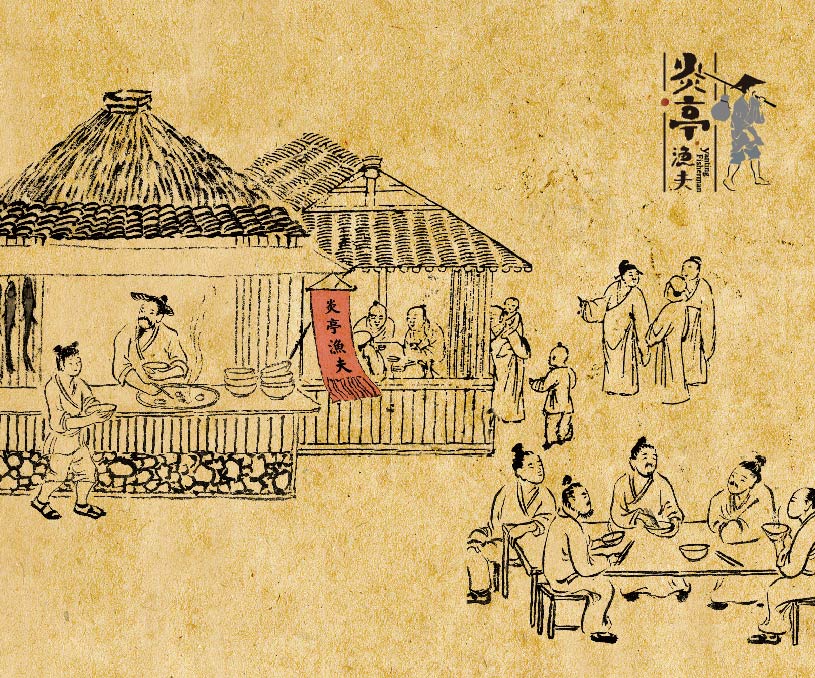 炎亭
渔夫
Yanting
Fisherman
炎亭漁夫